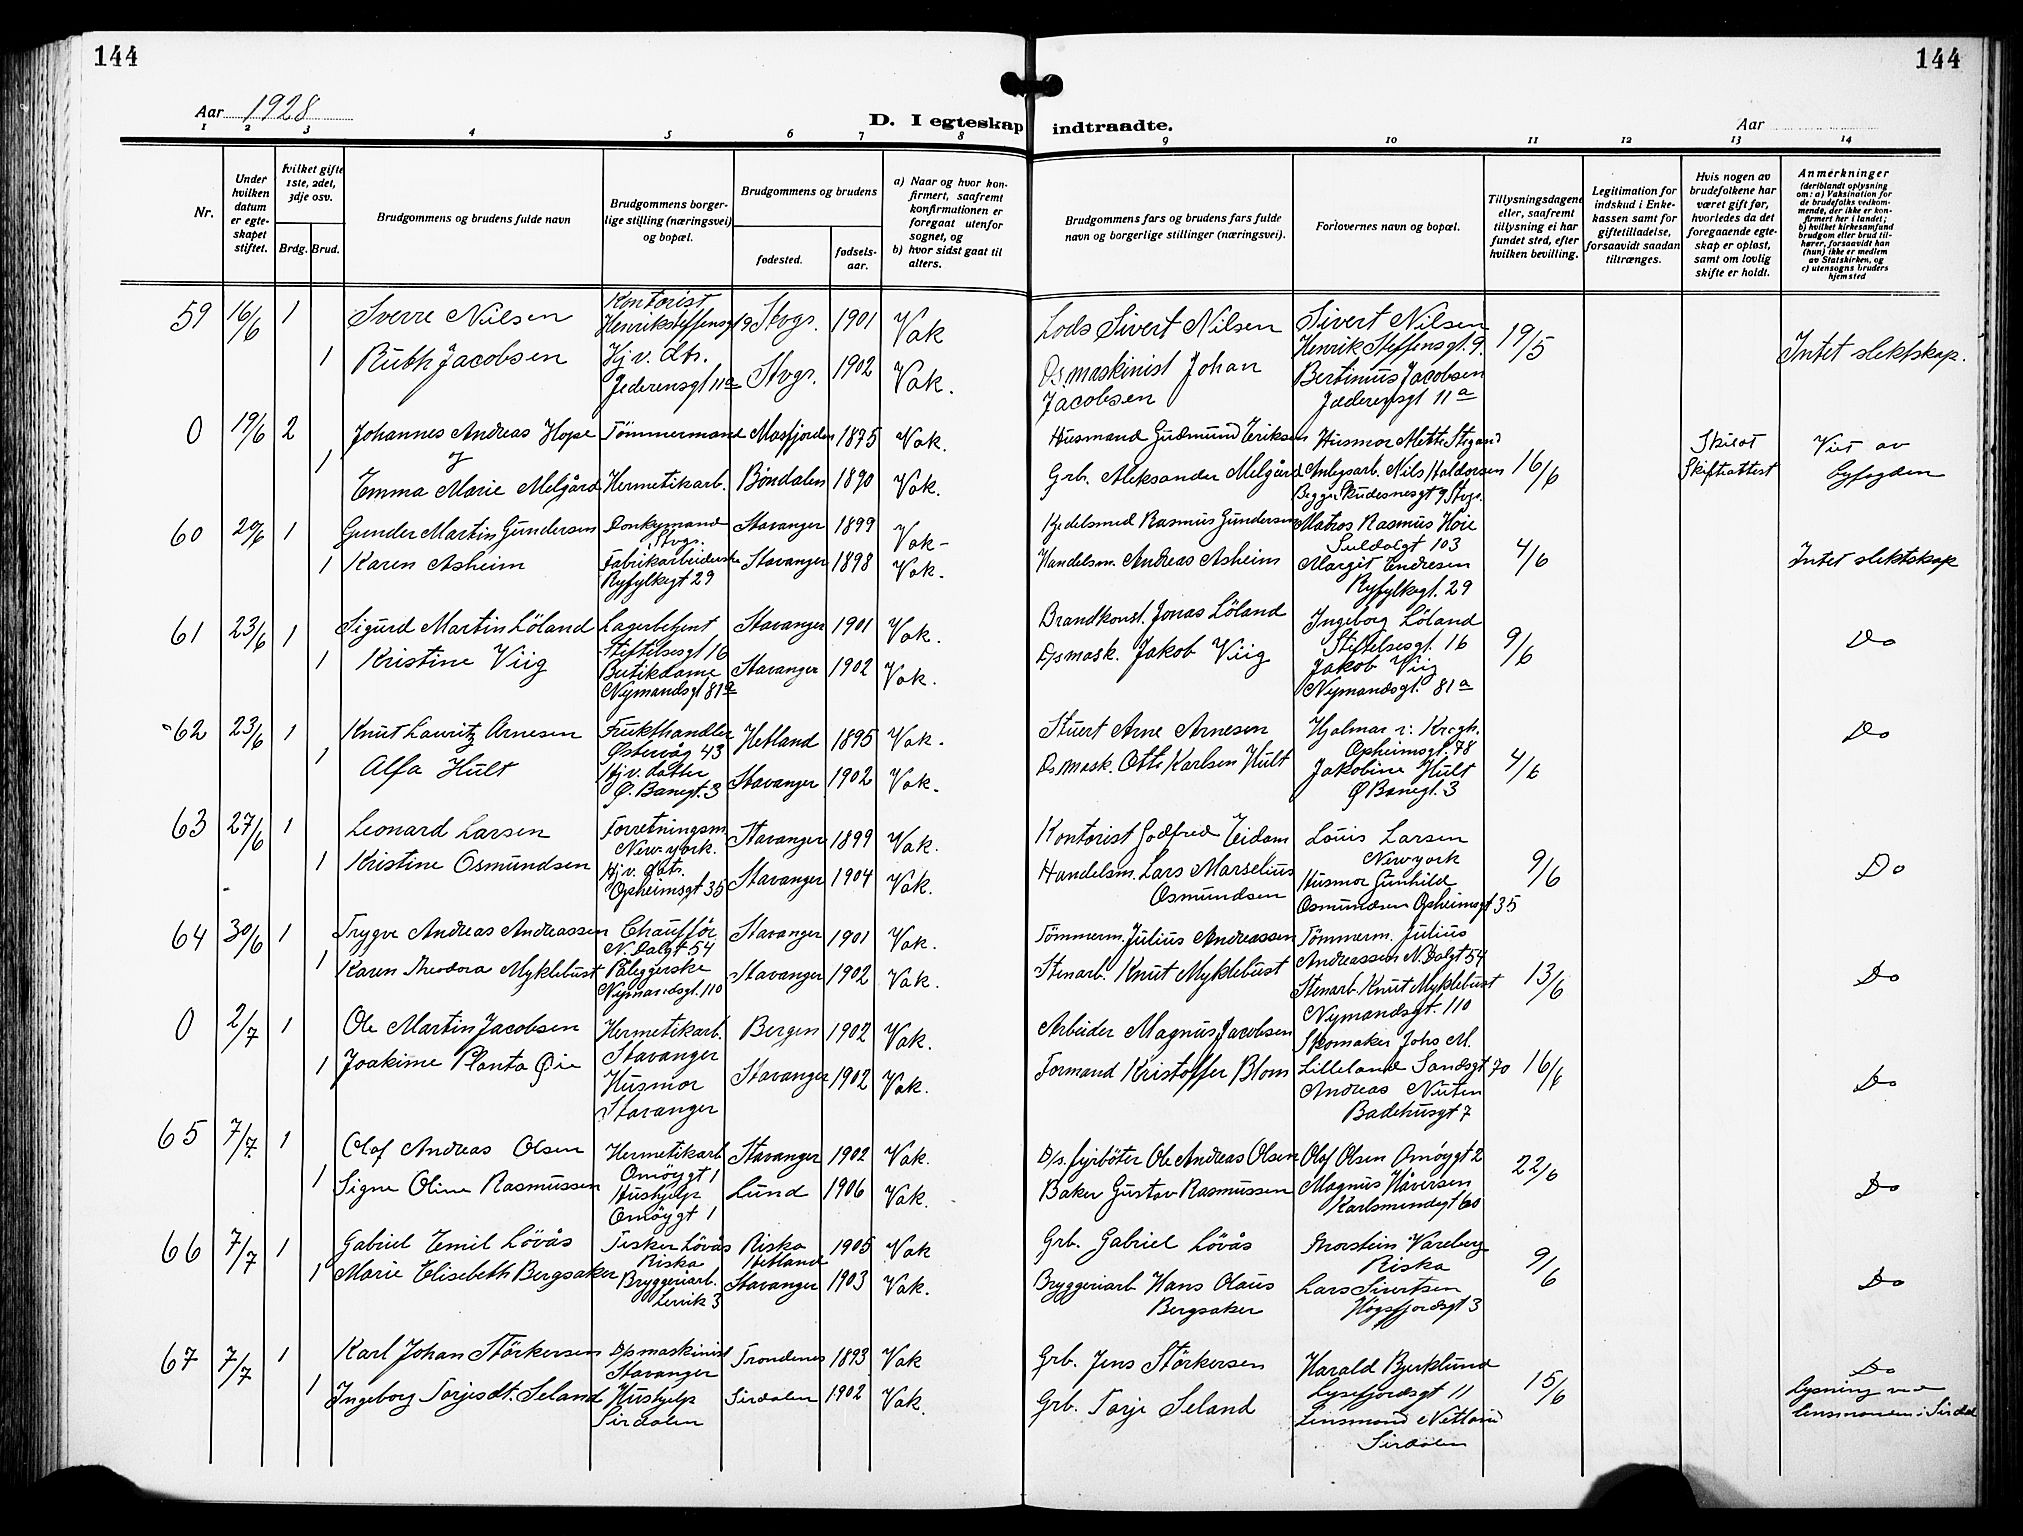 144
144
Aar 1928
D. I egteskap indtraadte.
Aar
1 2 3 4 5 6 7 8 9 10 11 12 13 14
Nr.
Under hvilken datum er egteskapet stiftet.
Hvilket gifte 1ste, 2det, 3dje osv.
Brdg. Brud.
Brudgommens og brudens fulde navn
Brudgommens borgerlige stilling (næringsvei) og bopæl.
Brudgommens og brudens
fødested.
fødselsaar.
a) Naar og hvor konfirmert, saafremt konfirmationen er foregaat utenfor sognet, og
b) hvor sidst gaat til alters.
Brudgommens fars og brudens fars fulde navn og borgerlige stillinger (næringsvei).
Forlovernes navn og bopæl.
Tillysningsdagene eller, saafremt tillysning ei har fundet sted, efter hvilken bevilling.
Legitimation for indskud i Enkekassen samt for giftetilladelse, forsaavidt saadan tiltrænges.
Hvis nogen av brudefolkene har været gift før, hvorledes da det foregaaende egteskap er opløst, samt om lovlig skifte er holdt.
Anmerkninger
(deriblandt oplysning om: a) Vaksination for de brudefolks vedkommende, der ikke er konfirmert her i landet; b) hvilket kirkesamfund brudgom eller brud tilhører, forsaavidt han (hun) ikke er medlem av Statskirken, og c) utensogns bruders hjemsted
59 16/6 1 Sverre Nilsen Kontorist Henrik Steffensgt 19 Stvgr. 1901 Vak Lods Sivert Nilsen Sivert Nilsen Henrik Steffensgt. 9. 19/5 Intet slektskap.
1 Ruth Jacobsen Hj v. dtr. Jederensgt 11a Stvgr. 1902 Vak. Ds. maskinist Johan Jacobsen Bertinius Jacobsen Jæderensgt 11a
0 19/6 2 Johannes Andreas Hope Tömmermand Masfjorden 1875 Vak. Husmand Gudmund Eriksen Husmor Mette 16/6 Skilt Skifteattest Viet av byfogden
1 Emma Marie Melgård Hermetikarb. Bindalen 1890 Vak. Grb. Aleksander Melgård Anlegsarb. Nils Haldorsen Begge Skudesnesgt 9 Stvgr.
60 20/6 1 Gunder Martin Gundersen Donkymand Stvgr. Stavanger 1899 Vak- Kjedelsmed Rasmus Gundersen Matros Rasmus Høie Suldalgt 103 4/6 Intet slektskap
1 Karen Asheim Fabrikarbeiderske Ryfylkegt 29 Stavanger 1898 Vak. Handelsm. Andreas Asheim Margit Endresen Ryfylkegt. 29
61 23/6 1 Sigurd Martin Löland Lagerbetjent Stiftelsesgt 16 Stavanger 1901 Vak. Brandkonst. Jonas Löland Ingeborg Löland Stiftelsesgt. 16 9/6 Do
1 Kristine Viig Butikdame Nymandsgt 81a Stavanger 1902 Vak. D/s mask. Jakob Viig Jakob Viig Nymandsgt. 81a
62 23/6 1 Knut Lauritz Arnesen Frukthandler Østervåg 43 Hetland 1895 Vak. Stuert Arne Arnesen Hjalmar v. Krogh. Opheimsgt. 78 4/6 Do
1 Alfa Hult Hj v. datter Ø. Banegt. 3 Stavanger 1902 Vak. Ds. mask. Otto Karlsen Hult Jakobine Hult Ø Banegt. 3
63 27/6 1 Leonard Larsen Forretningsm. New-york. Stavanger 1899 Vak. Kontorist Godfred Eidam Louis Larsen Newyork 9/6 Do
1 Kristine Osmundsen Hj v. dats. Opheimsgt 35 Stavanger 1904 Vak. Handelsm. Lars Marselius Osmundsen Husmor Gunhild Osmundsen Opheimsgt 35
64 30/6 1 Trygve Andreas Andreassen Chaufför N. Dalgt 54 Stavanger 1901 Vak. Tömmerm. Julius Andreassen Tömmerm. Julius Andreassen N. Dalgt 54 13/6 Do
1 Karen Theodora Myklebust Påleggerske Nymandsgt. 110 Stavanger 1902 Vak. Stenarb. Knut Myklebust Stenarb. Knut Myklebust Nymandsgt. 110
0 2/7 1 Ole Martin Jacobsen Hermetikarb. Stavanger Bergen 1902 Vak. Arbeider Magnus Jacobsen Skomaker Johs M. Lilleland Sandsgt 70 16/6 Do
1 Joakime Planta Øie Husmor Stavanger Stavanger 1902 Vak. Formand Kristoffer Blom Andreas Badehusgt 7
65 7/7. 1 Olaf Andreas Olsen Hermetikarb Omöygt 1 Stavanger 1902 Vak. D/s. fyrböter Ole Andreas Olsen Olaf Olsen Omöygt 2 22/6 Do
1 Signe Oline Rasmussen Hushjelp Omöygt 1 Lund 1906 Vak. Baker Gustav Rasmussen Magnus Håversen Karlsmindegt 60
66 7/7 1 Gabriel Emil Lövås Fisker Lövås Riska Riska Hetland 1905 Vak Grb. Gabriel Lövås Thorstein Vareberg Riska 9/6 Do
1 Marie Elisebeth Bergsaker Bryggeriarb. Lervik 3 Stavanger 1903 Vak. Bryggeriarb Hans Olaus Bergsaker Lars Sivertsen Högsfjordsgt 3
67 7/7 1 Karl Johan Störkersen D/s maskinist Stavanger Trondenes 1893 Vak Grb. Jens Störkersen Harald Bjerklund Lysefjordsgt 11 15/6 Do
1 Ingeborg Torjesdt. Seland Hushjelp Sirdalen Sirdalen 1902 Vak. Grb. Torje Seland Lensmand Netland Sirdalen Lysning ved lensmanden i Sirdal